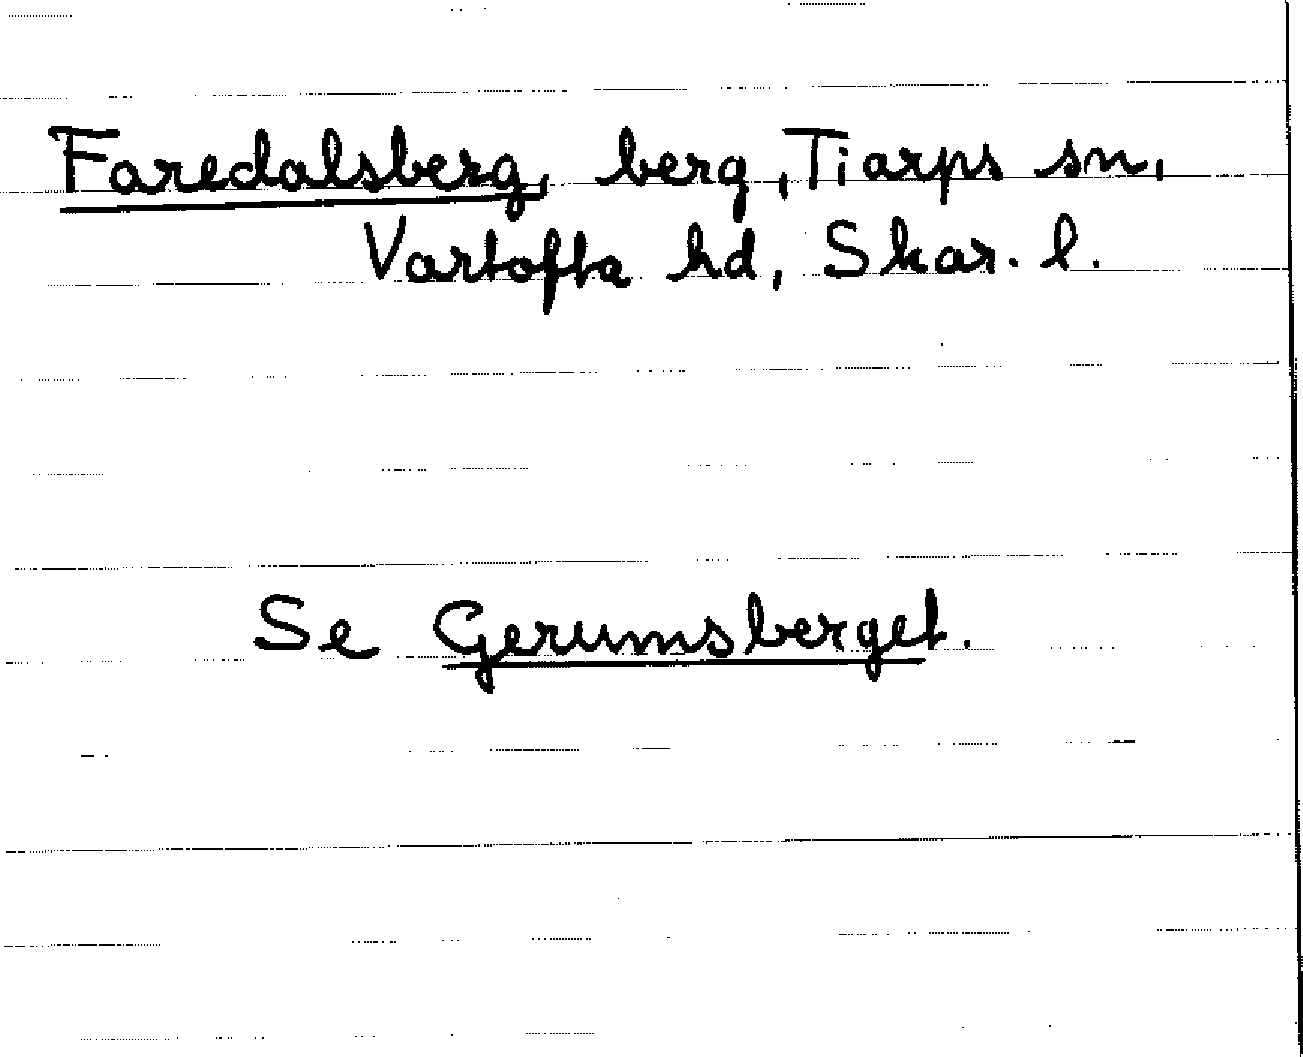 Faredalsberg, berg, Tiarps sn,
Vartofta hd, Skar. l.
Se Gerumsberget.